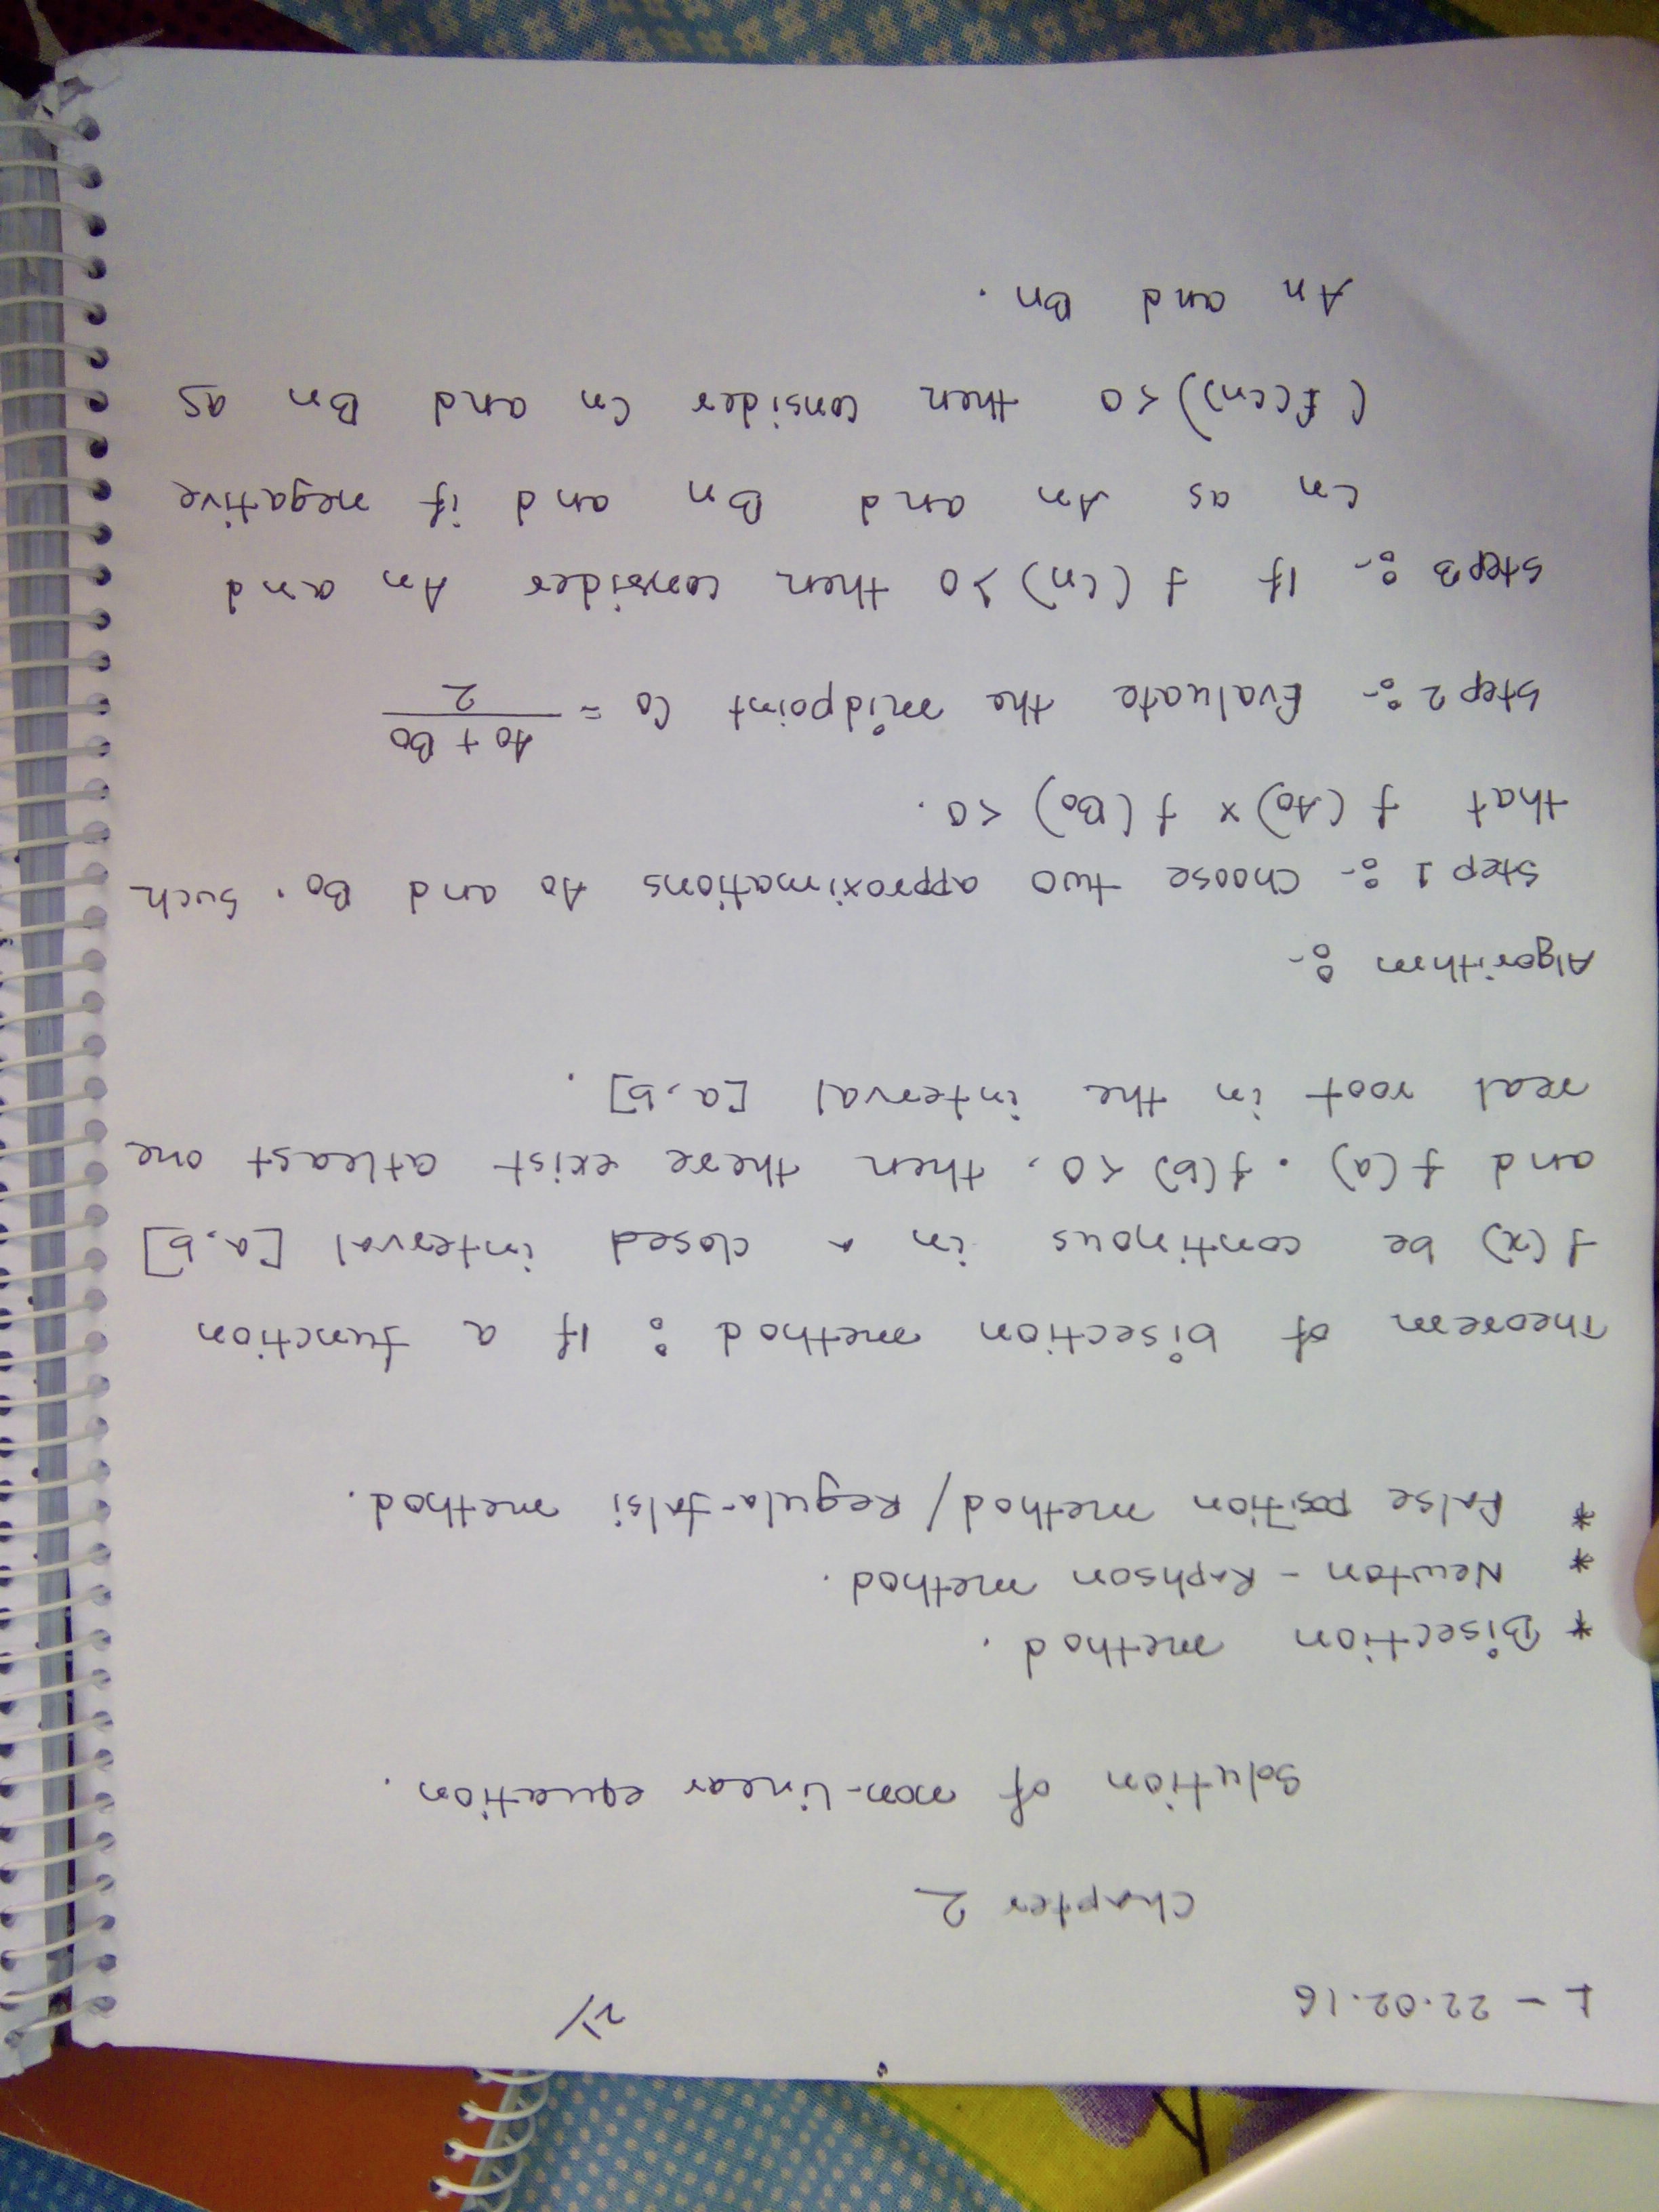 L - 22.02.16
2)/
Chapter 2
Solution of non-linear equation.
* Bisection method.
* Newton - Raphson method.
* False position method/ Regula-falsi method.
Theorem of bisection method : If a function
f(x) be continous in a closed interval [a,b]
and f(a) . f(b) <0, then there exist atleast one
real root in the interval [a,b].
Algorithm :-
Step 1 :- Choose two approximations A0 and B0. Such
that f (A0) x f (B0) <0.
Step 2 :- Evaluate the midpoint C0 = A0 + B0 / 2
Step 3 :- If f (Cn) >0 then consider An and
Cn as An and Bn and if negative
(f(Cn)) <0 then consider Cn and Bn as
An and Bn.